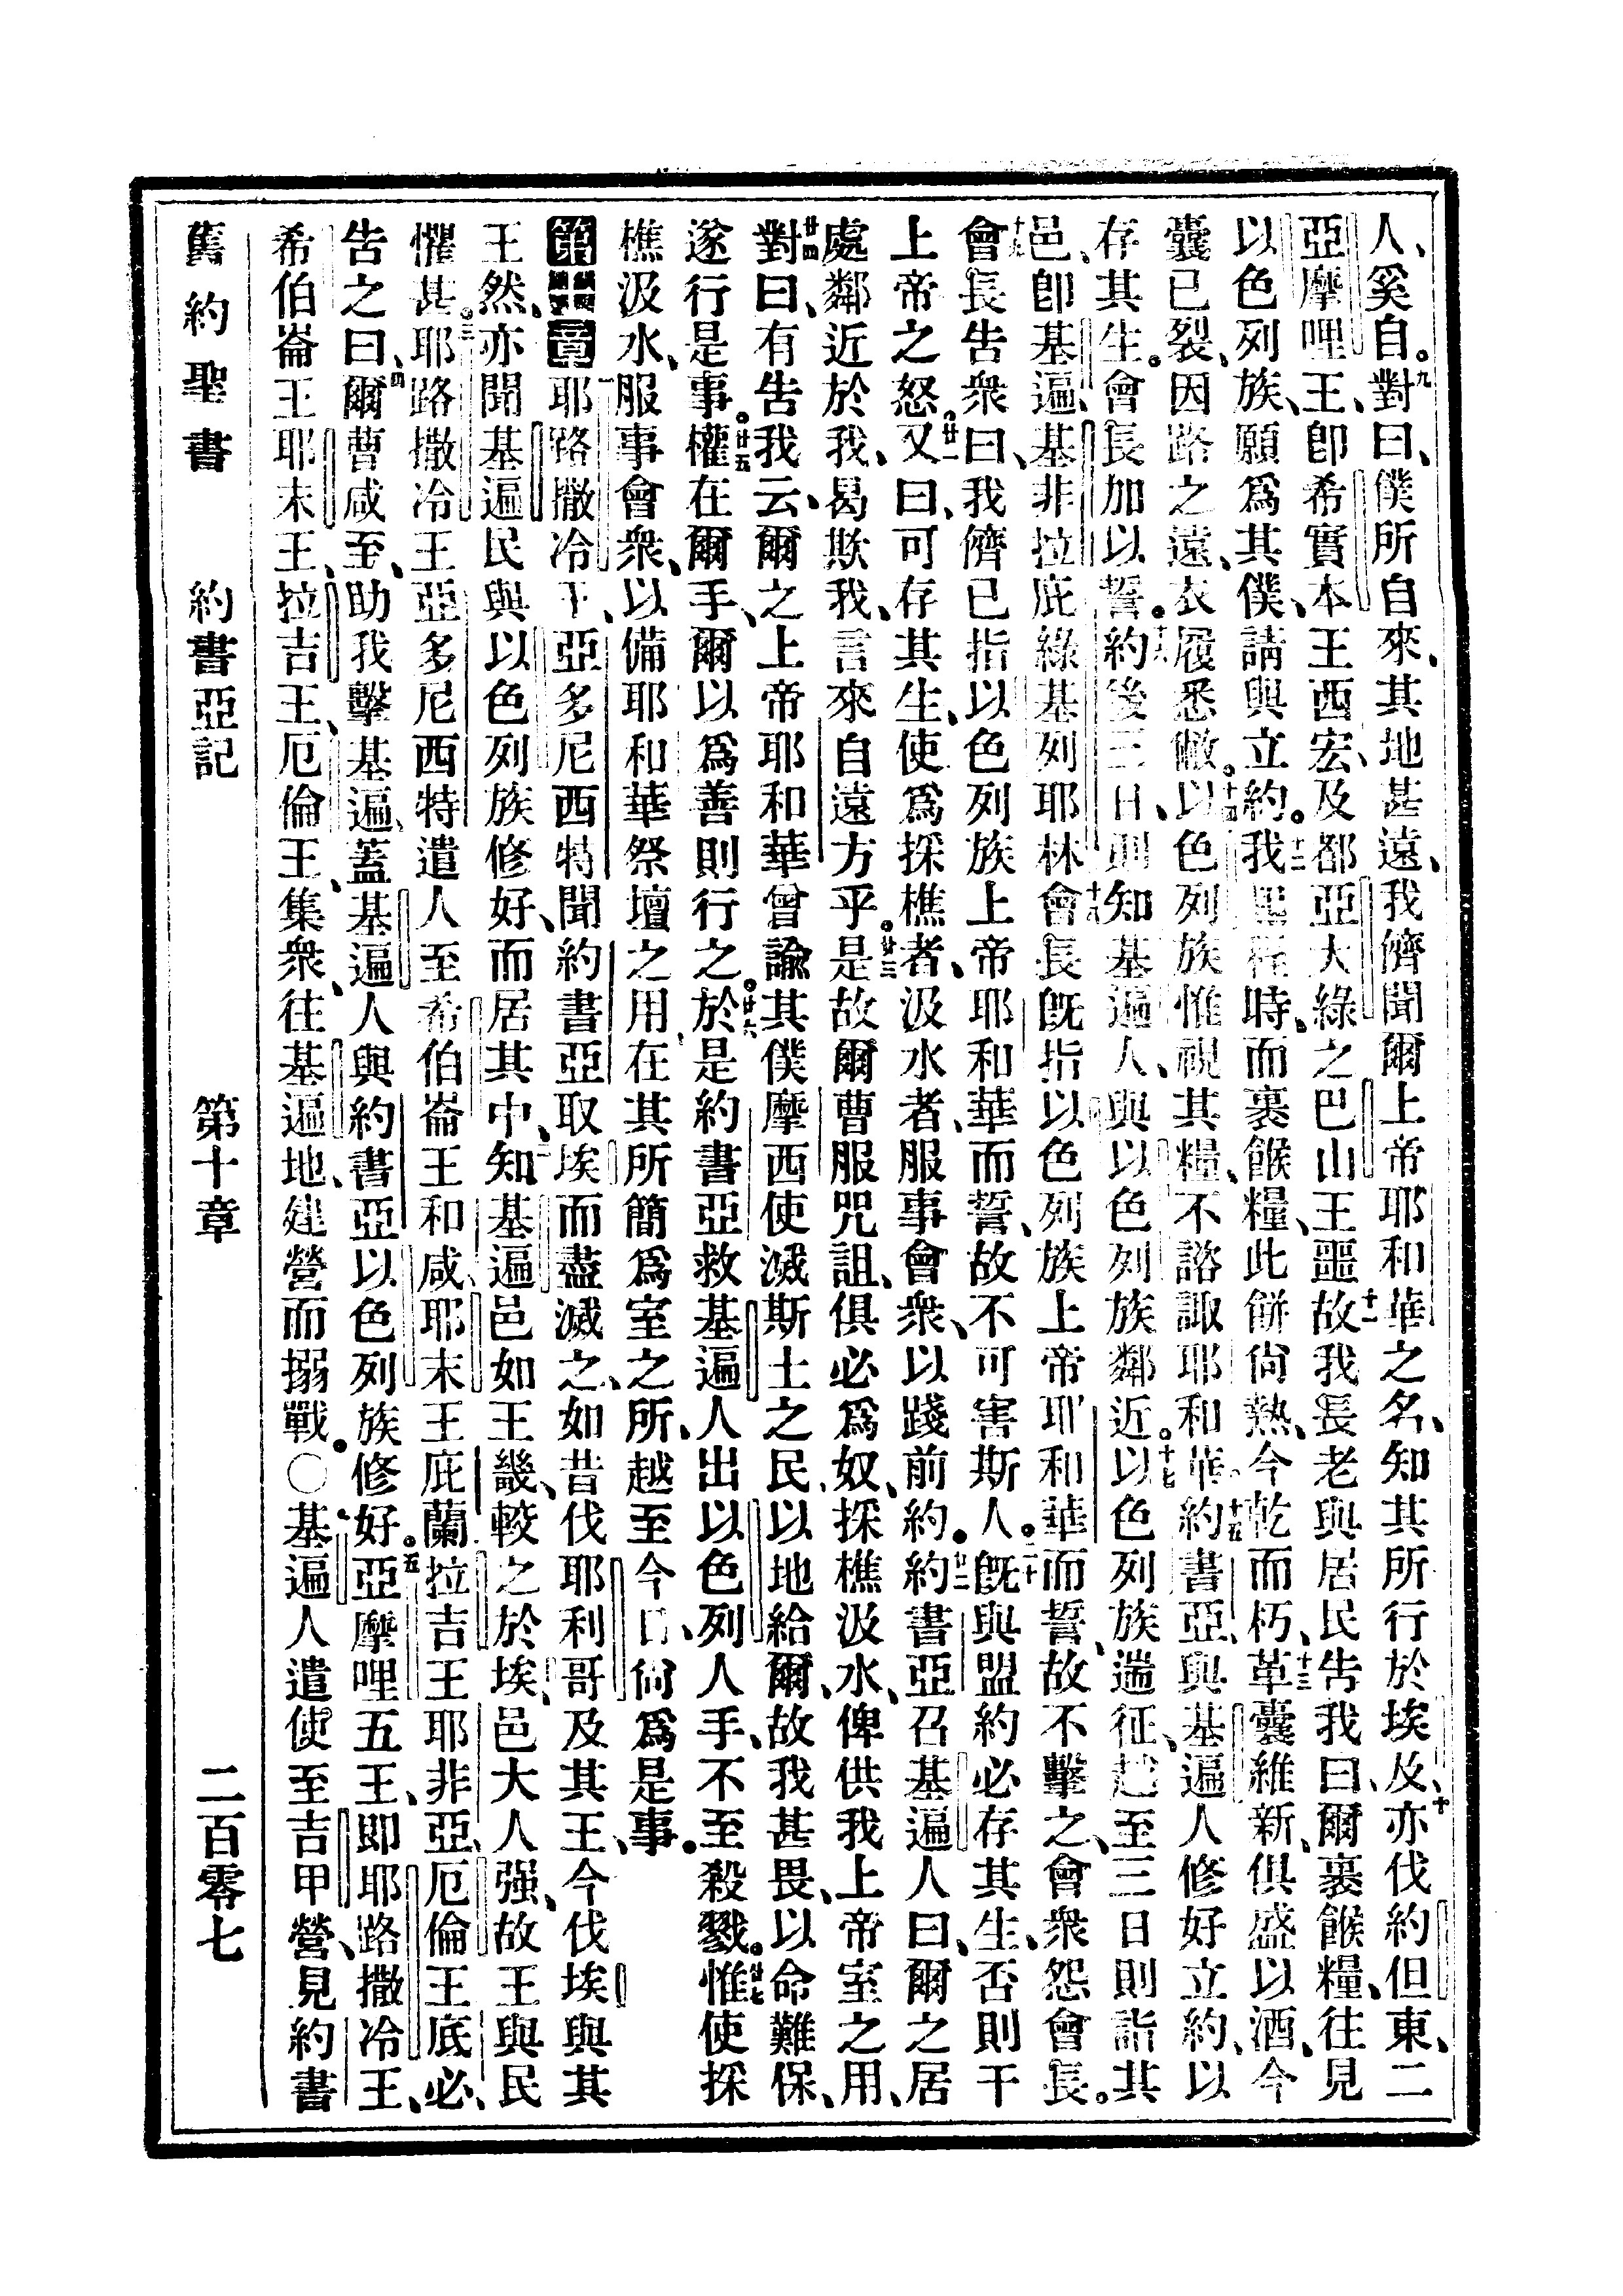 人、奚自。九對曰、僕所自來、其地甚遠、我儕聞爾上帝耶和華之名、知其所行於埃及、十亦伐約但東、二
亞摩哩王、卽希實本王西宏、及都亞大綠之巴山王噩、十一故我長老與居民告我曰、爾裹餱糧、往見
以色列族、願爲其僕、請與立約。十二我啓程時、而裹餱糧、此餅尙熱、今乾而朽、十三革囊維新、俱盛以酒、今
囊已裂、因路之遠、衣履悉敝。十四以色列族惟視其糧、不諮諏耶和華。十五約書亞與基遍人修好立約、以
存其生。會長加以誓。十六約後三日、則知基遍人、與以色列族鄰近。十七以色列族遄征、越至三日則詣其
邑、卽基遍、基非拉庇綠基列耶林、十八會長旣指以色列族上帝耶和華而誓、故不擊之、會衆怨會長。
十九會長告衆曰、我儕已指以色列族上帝耶和華而誓、故不可害斯人。二十旣與盟約必存其生、否則干
上帝之怒。廿一又曰、可存其生、使爲採樵者、汲水者、服事會衆、以踐前約。廿二約書亞召基遍人曰、爾之居
處鄰近於我、曷欺我、言來自遠方乎。廿三是故爾曹服咒詛、俱必爲奴、採樵汲水、俾供我上帝室之用、
廿四對曰、有告我云、爾之上帝耶和華曾諭其僕摩西使滅斯土之民、以地給爾、故我甚畏、以命難保、
遂行是事。廿五權在爾手、爾以爲善則行之。廿六於是約書亞救基遍人出以色列人手、不至殺戮。廿七惟使採
樵汲水、服事會衆、以備耶和華祭壇之用、在其所簡爲室之所、越至今日、尙爲是事。
第十章 一耶路撒冷王、亞多尼西特聞約書亞取埃而盡滅之、如昔伐耶利哥及其王、今伐埃與其
王然、亦聞基遍民與以色列族修好、而居其中、二知基遍邑如王畿、較之於埃、邑大人强、故王與民
懼甚。三耶路撒冷王亞多尼西特遣人至希伯崙王和咸、耶末王庇蘭、拉吉王耶非亞、厄倫王底必、
告之曰、四爾曹咸至、助我擊基遍、蓋基遍人與約書亞以色列族修好。五亞摩哩五王、卽耶路撒冷王、
希伯崙王耶末王、拉吉王、厄倫王、集衆、往基遍地、建營而搦戰。〇基遍人遣使至吉甲營、見約書
舊約聖書 約書亞記 第十章 二百零七